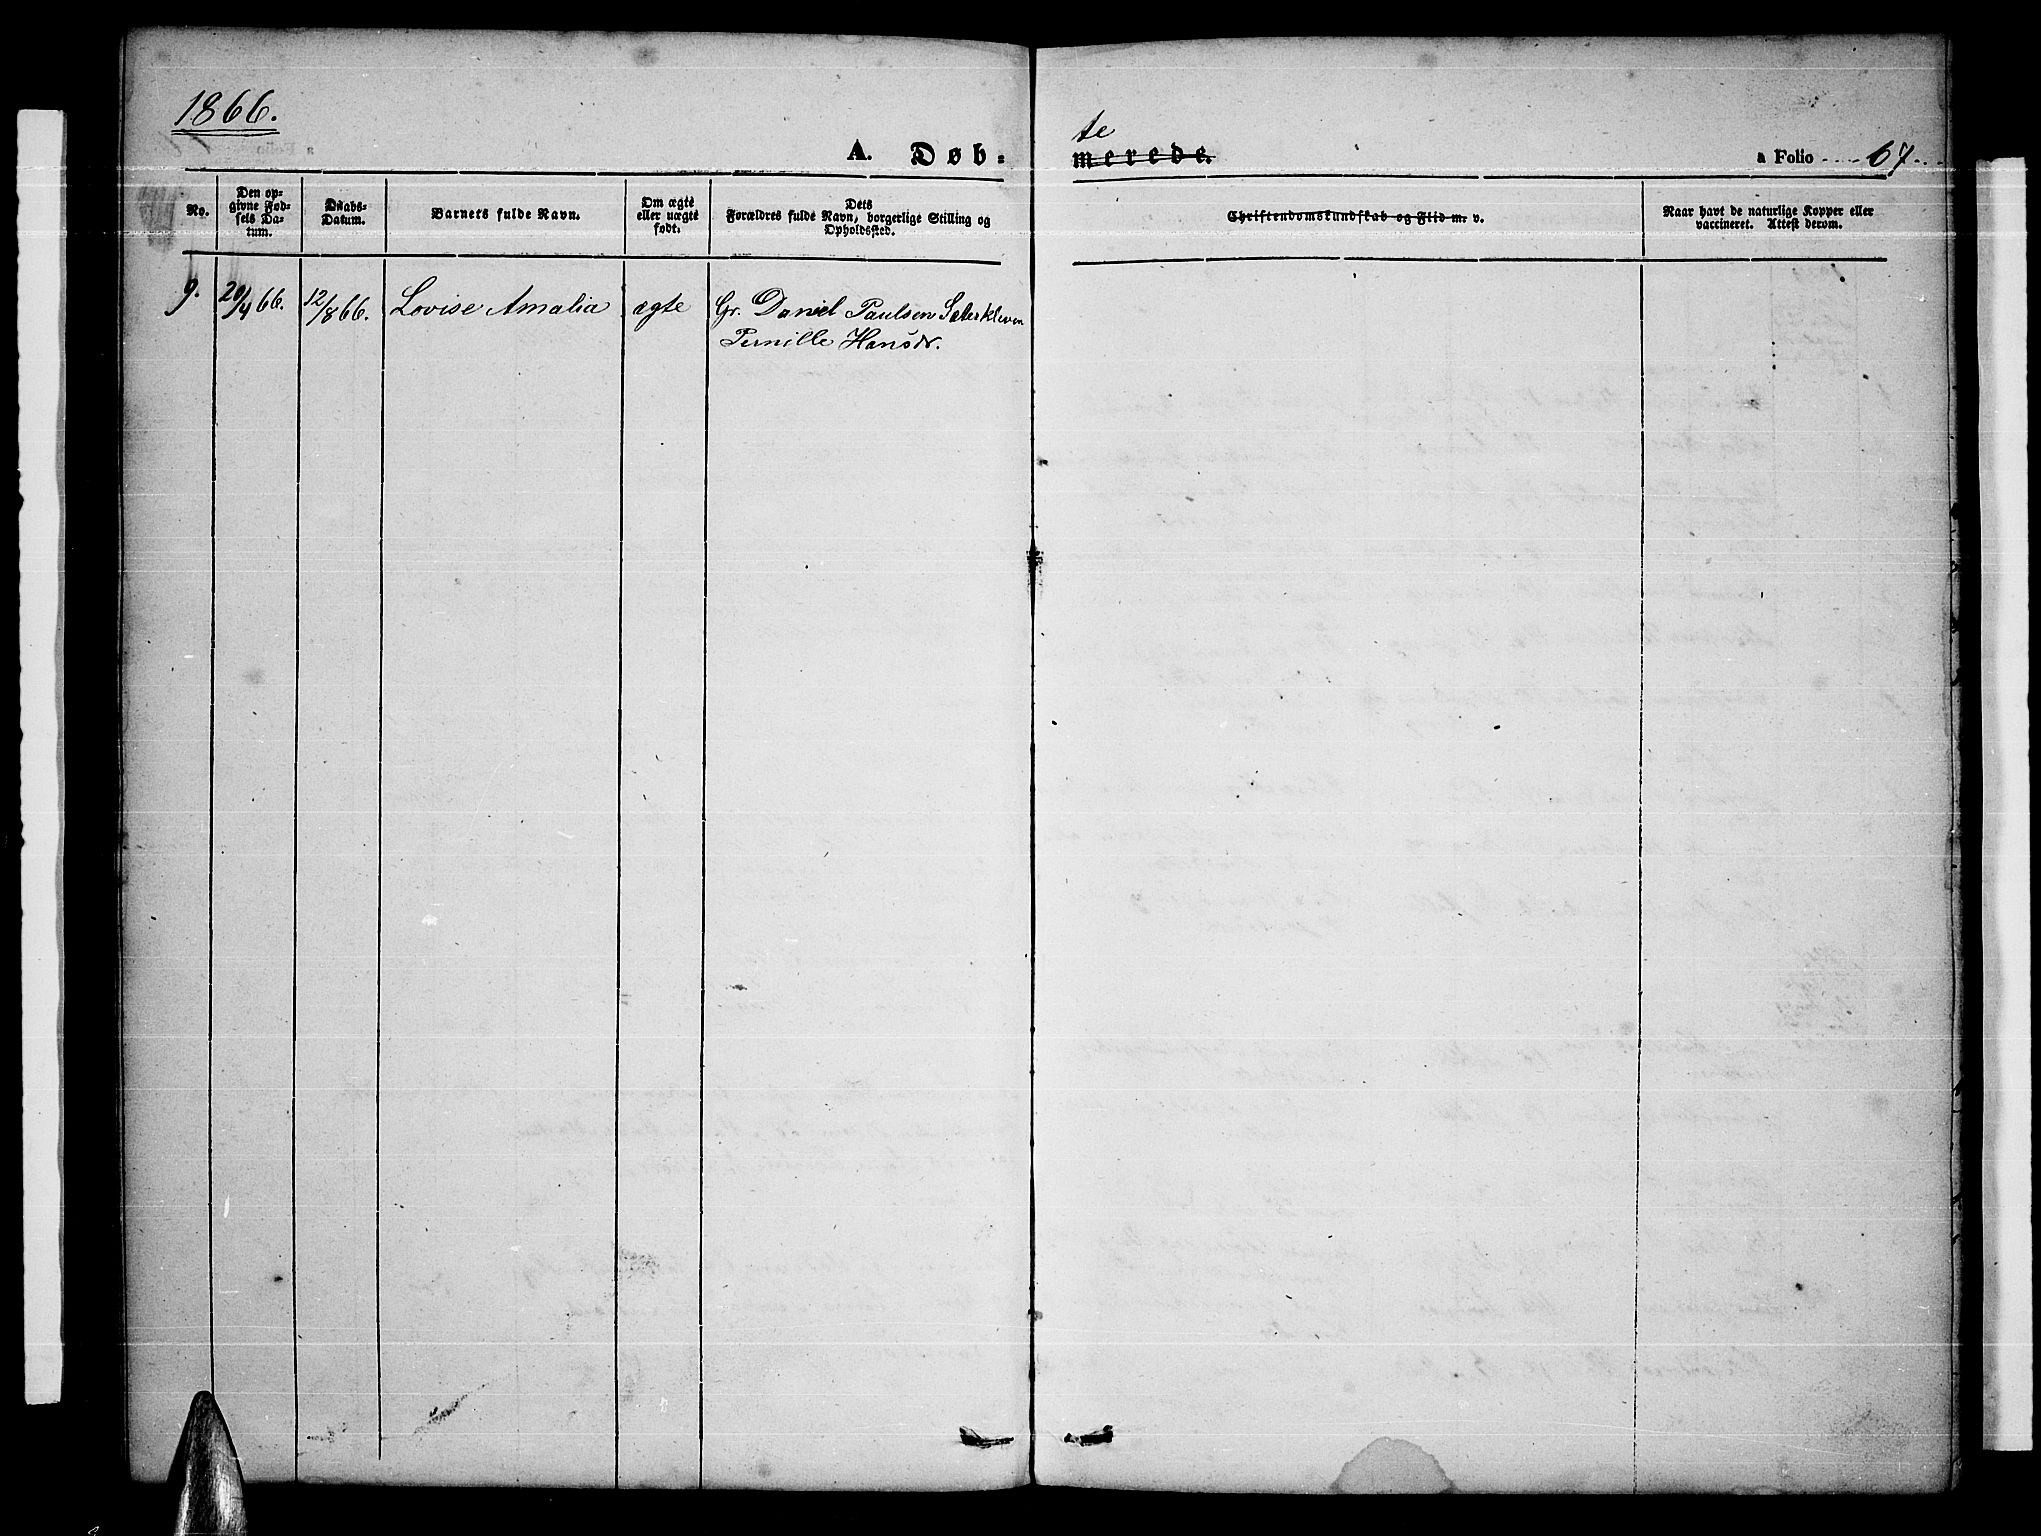 1866.
te
A. Døb=
merede.
a Folio 67.
No.
Den op-
givne Fød-
sels Da-
tum.
Daabs-
Datum.
Barnets fulde Navn.
Om ægte
eller uægte
født.
Dets
Forældres fulde Navn, borgerlige Stilling og
Opholdssted.
Christendomskundskab og Flid m. v.
Naar havt de naturlige Kopper eller
vaccineret. Attest derom.
9. 20/4 66. 12/8 66. Lovise Amalia ægte Gr. Daniel Paulsen Sæterkleven
Pernille Hansdr.